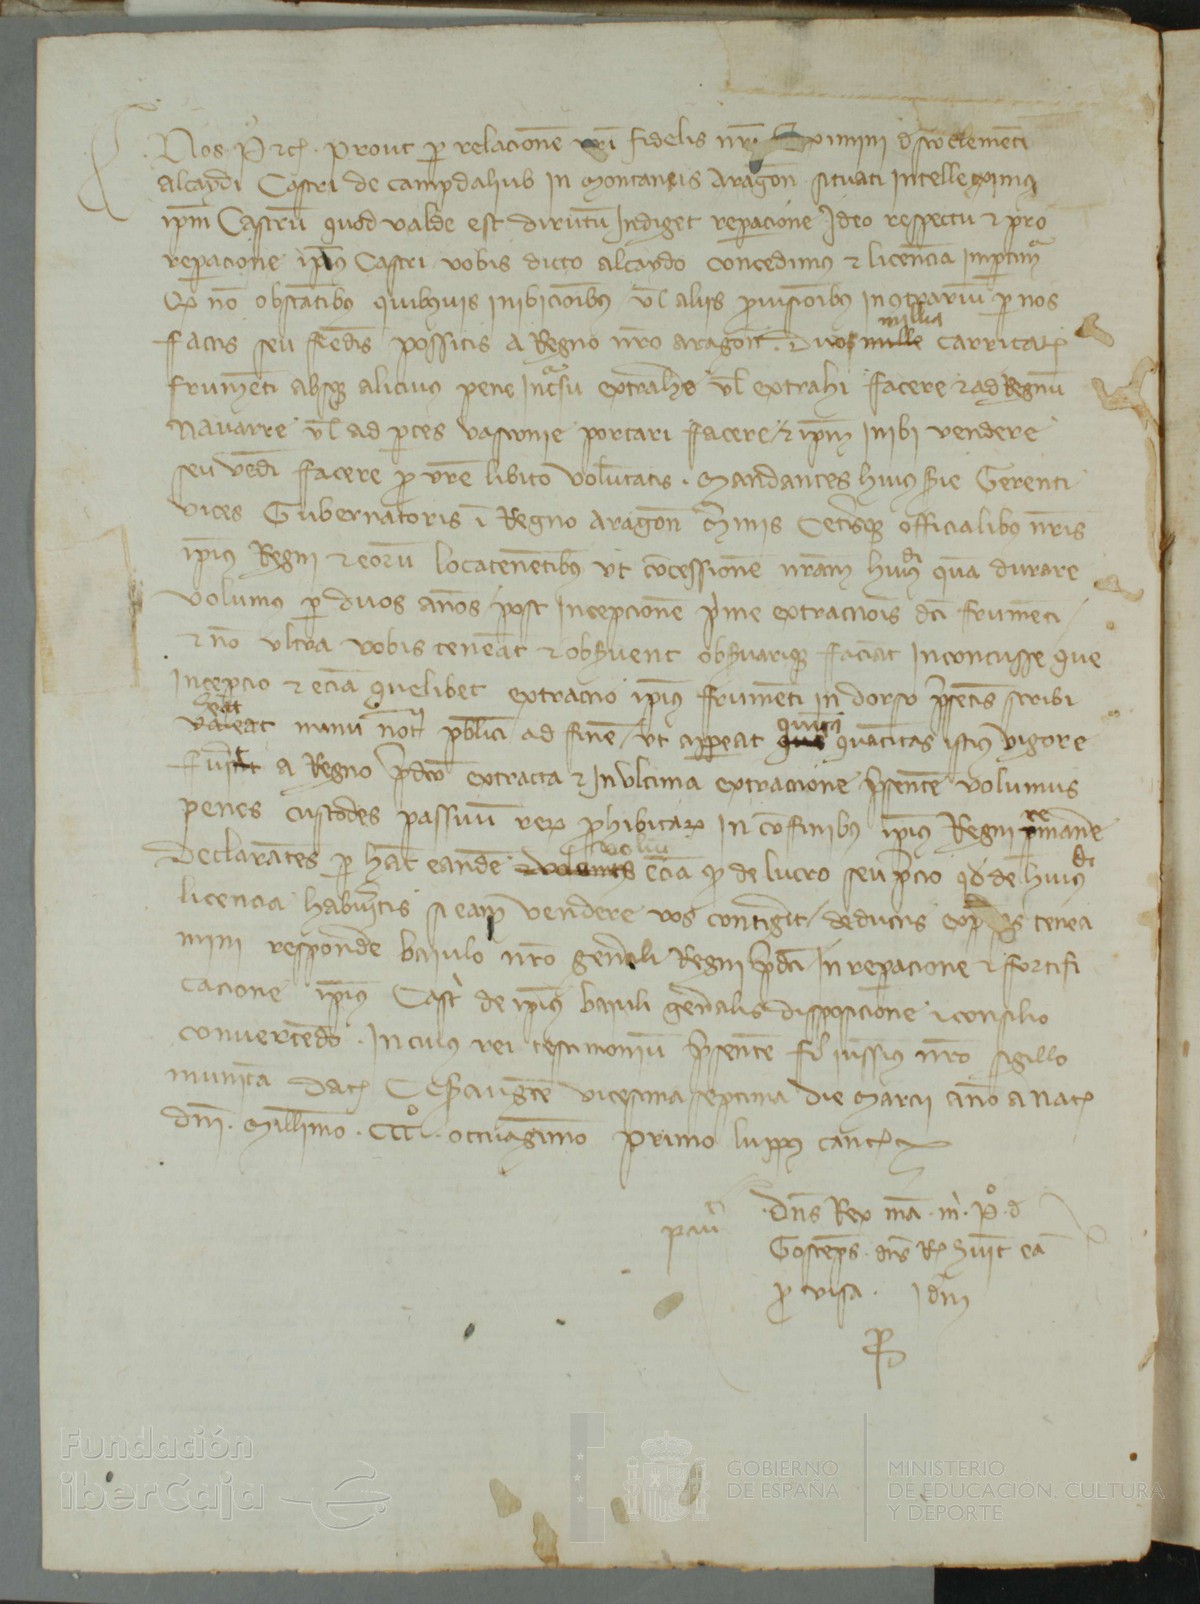 Nos P. etc. prout p relacione vri fidelis nri Eximini d sco clementi
alcaydi Castri de campdaliub in montaneis Aragon situati intelleximus
ipm Castru quod valde est dirutu indiget repacione Ideo respectu & pro
repacione ipius Castri vobis dicto alcaydo concedimus & licencia impartimur
Q no obstatibus quibusuis inibicioibus vl aliis prouisioibus in contrariu p nos
factis seu fiedis possitis a Regno nro aragon. Duos millia carricat
frumeti absq alicuius pene incursu extrahe vl extrahi facere & ad Regnu
Nauarre vl ad ptes vasconie portari facere & ipm inibi vendere
seu vedi facere p vre libito volutatis. Mandantes huius serie Gerenti
vices Gubernatoris i Regno aragon ceterisq officialibus nris
ipius Regni & eoru locatenetibus vt cocessione nram huiusdi qua durare
volumus p duos anos post incepcione prime extraccionis dci frumeti
& no vltra vobis teneat & obseruent obseruariq faciat inconcusse que
incepcio & ecia quelibet extraccio ipius frumeti in dorso presentis scribi
heat manu not publici ad fine vt appeat quanta quatitas istius vigore
fuerit a Regno predco extracta & in vltima extraccione presente volumus
penes custodes passuum rerum prohibitarum in cofinibus ipius Regni remanere
declarates p hac eande volu ecia q de lucro seu precio qd de huiusdi
licencia habueritis si eam vendere vos contigerit deductis expesis tenea
mini respondere baiulo nro generali Regni predci in repacione & fortifi
cacione ipius Castri de ipius baiuli generalis disposicione & consilio
conuertedo. In cuius rei testimoniu presente fieri iussimus nro sigillo
munita Dat Cesarauguste vicesima septima die marcii ano a nat
dni. Millimo. CCC. octuagesimo primo luppus cancel
Dns Rex ma. m. P. d
Gostemps. dns Rex huit ea
p visa. Idm
P
Fundación
iberCaja
GOBIERNO
DE ESPAÑA
MINISTERIO
DE EDUCACIÓN, CULTURA
Y DEPORTE